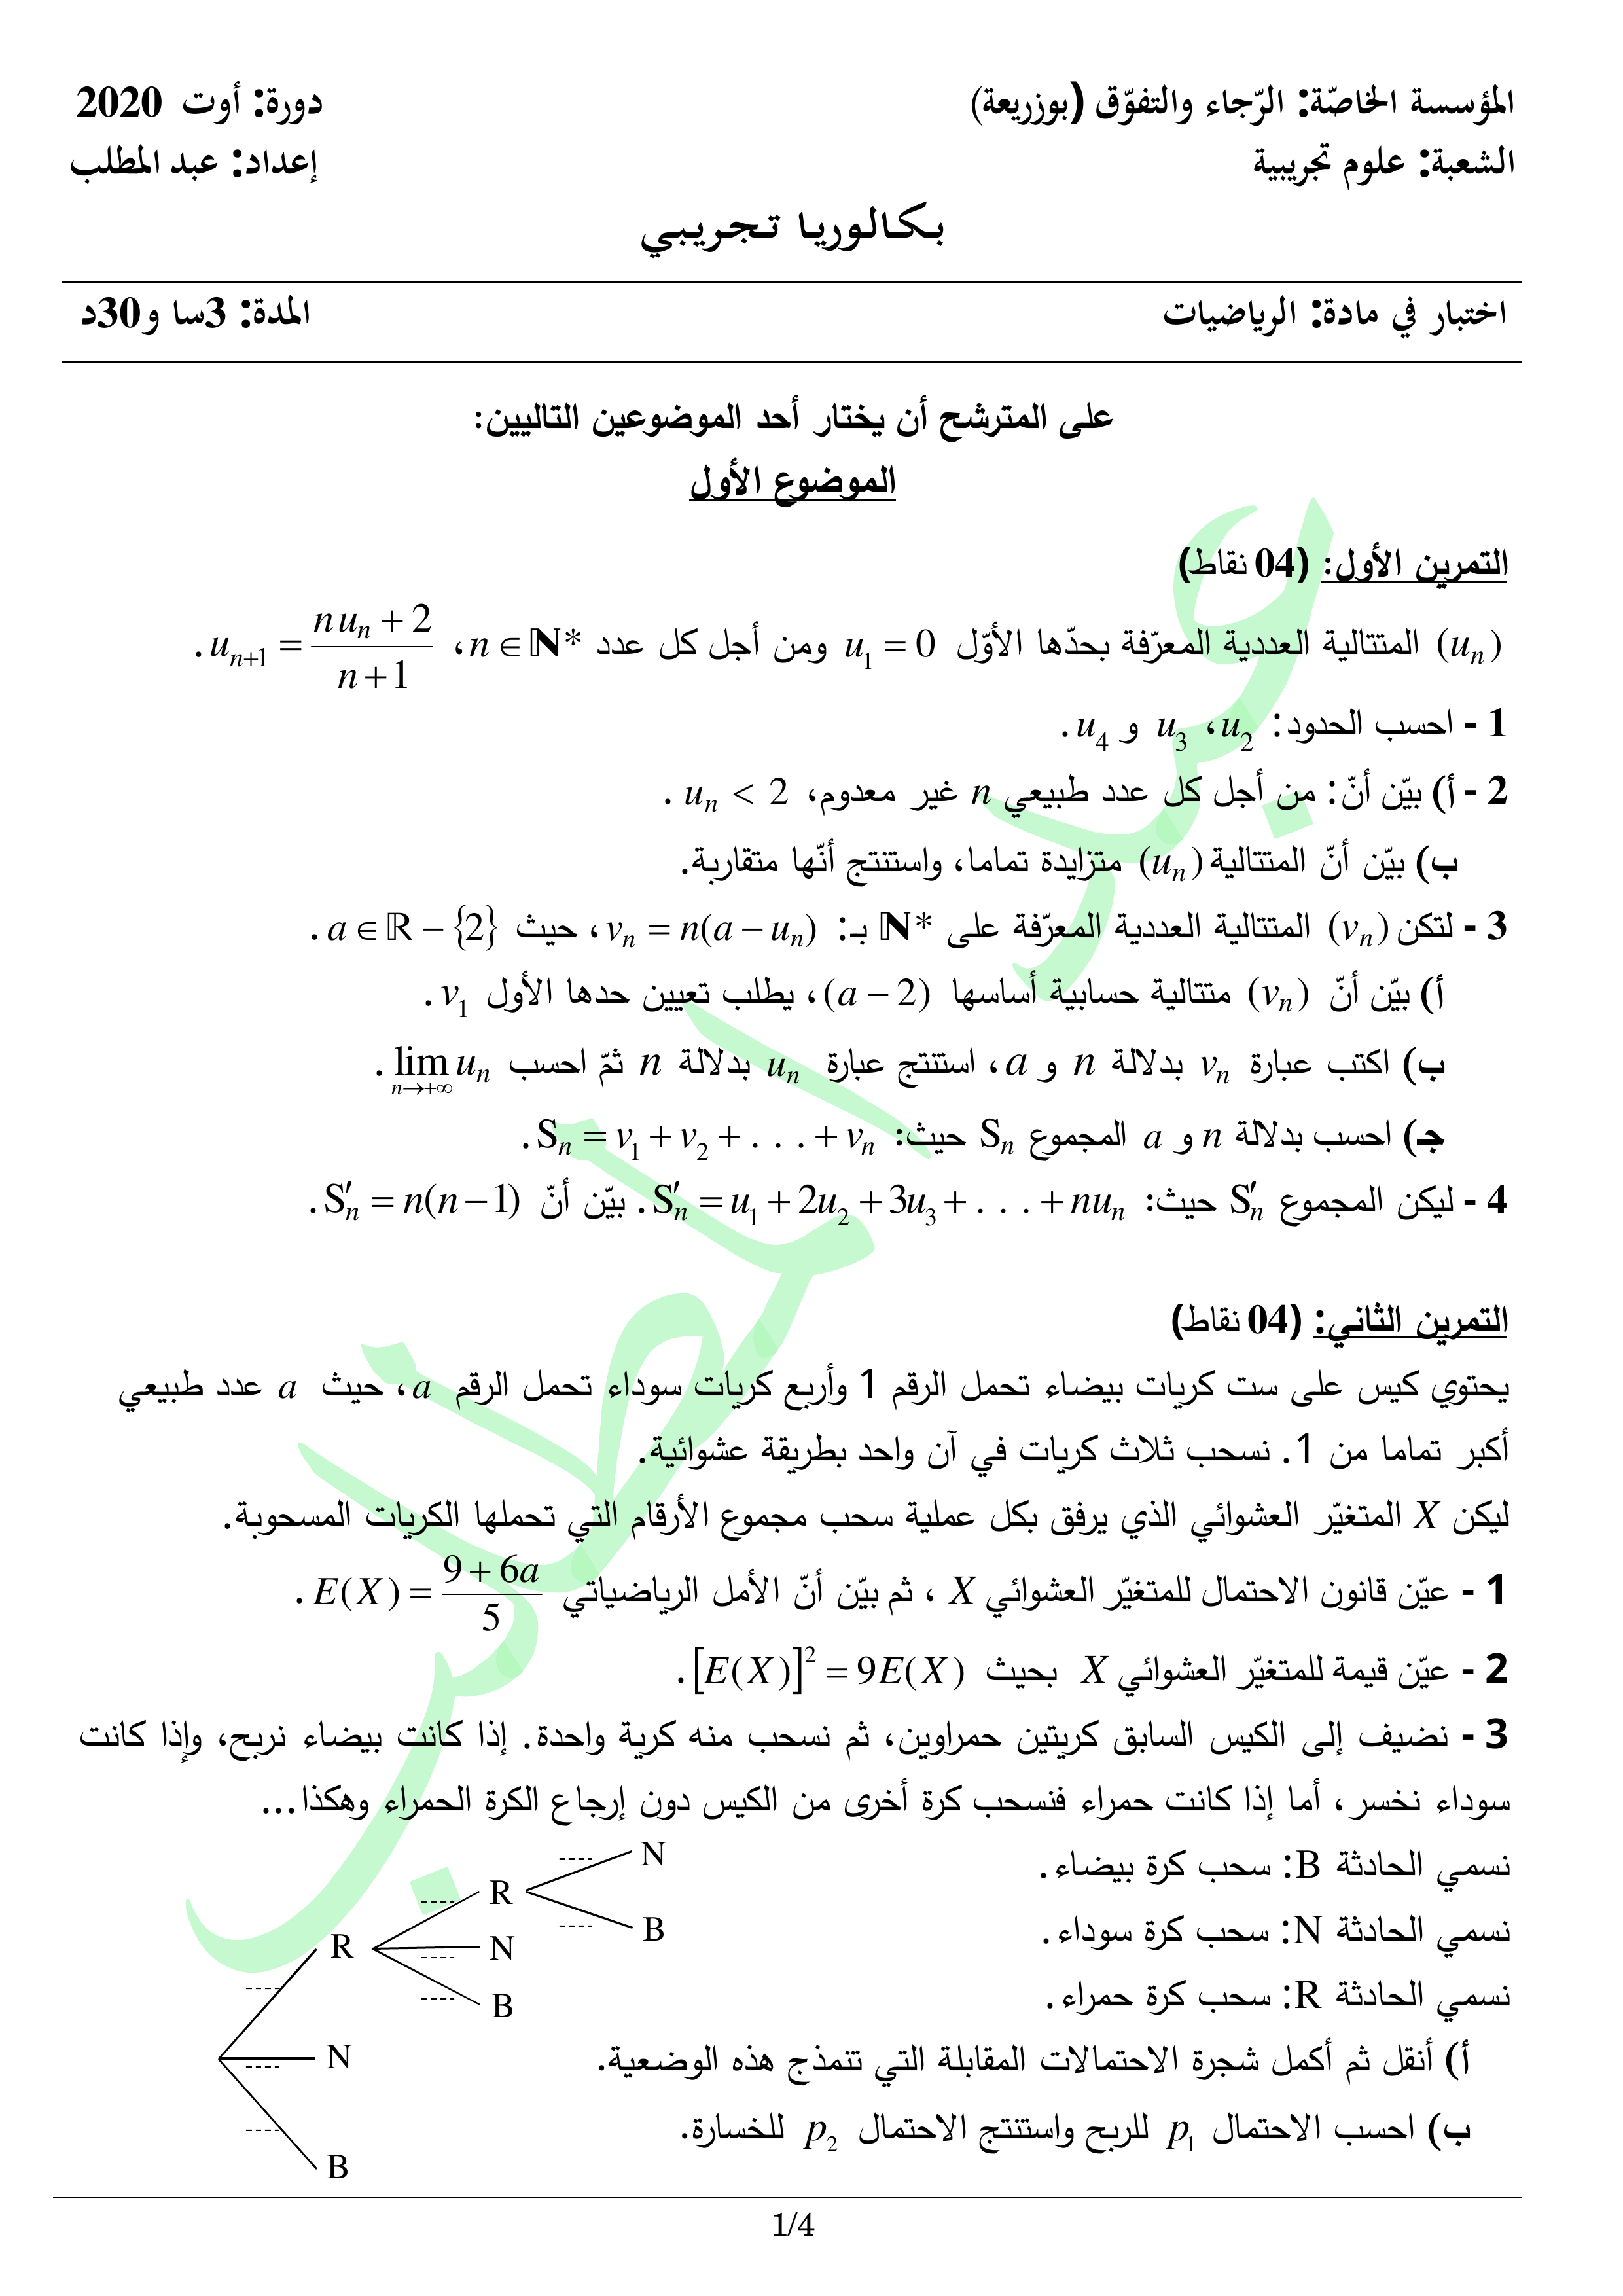 المؤسسة الخاصّة: الرّجاء والتفوّق (بوزريعة)
دورة: أوت 2020
الشعبة: علوم تجريبية
إعداد: عبد المطلب
بكالوريا تجريبي
اختبار في مادة: الرياضيات
المدة: 3سا و30د
على المترشح أن يختار أحد الموضوعين التاليين:
الموضوع الأول
التمرين الأول: (04 نقاط)
(u_n) المتتالية العددية المعرّفة بحدّها الأوّل u_1 = 0 ومن أجل كل عدد n ∈ ℕ*، u_{n+1} = (n u_n + 2)/(n + 1).
1 - احسب الحدود: u_2، u_3 و u_4.
2 - أ) بيّن أنّ: من أجل كل عدد طبيعي n غير معدوم، u_n < 2.
ب) بيّن أنّ المتتالية (u_n) متزايدة تماما، واستنتج أنّها متقاربة.
3 - لتكن (v_n) المتتالية العددية المعرّفة على ℕ* بـ: v_n = n(a − u_n)، حيث a ∈ ℝ − {2}.
أ) بيّن أنّ (v_n) متتالية حسابية أساسها (a − 2)، يطلب تعيين حدها الأول v_1.
ب) اكتب عبارة v_n بدلالة n و a، استنتج عبارة u_n بدلالة n ثمّ احسب lim_{n→+∞} u_n.
جـ) احسب بدلالة n و a المجموع S_n حيث: S_n = v_1 + v_2 + . . . + v_n.
4 - ليكن المجموع S′_n حيث: S′_n = u_1 + 2u_2 + 3u_3 + . . . + nu_n. بيّن أنّ S′_n = n(n − 1).
التمرين الثاني: (04 نقاط)
يحتوي كيس على ست كريات بيضاء تحمل الرقم 1 وأربع كريات سوداء تحمل الرقم a، حيث a عدد طبيعي
أكبر تماما من 1. نسحب ثلاث كريات في آن واحد بطريقة عشوائية.
ليكن X المتغيّر العشوائي الذي يرفق بكل عملية سحب مجموع الأرقام التي تحملها الكريات المسحوبة.
1 - عيّن قانون الاحتمال للمتغيّر العشوائي X ، ثم بيّن أنّ الأمل الرياضياتي E(X) = (9 + 6a)/5.
2 - عيّن قيمة للمتغيّر العشوائي X بحيث [E(X)]² = 9E(X).
3 - نضيف إلى الكيس السابق كريتين حمراوين، ثم نسحب منه كرية واحدة. إذا كانت بيضاء نربح، وإذا كانت
سوداء نخسر، أما إذا كانت حمراء فنسحب كرة أخرى من الكيس دون إرجاع الكرة الحمراء وهكذا...
نسمي الحادثة B: سحب كرة بيضاء.
نسمي الحادثة N: سحب كرة سوداء.
نسمي الحادثة R: سحب كرة حمراء.
أ) أنقل ثم أكمل شجرة الاحتمالات المقابلة التي تنمذج هذه الوضعية.
ب) احسب الاحتمال p_1 للربح واستنتج الاحتمال p_2 للخسارة.
N
R
B
R
N
B
N
B
1/4
عبد المطلب